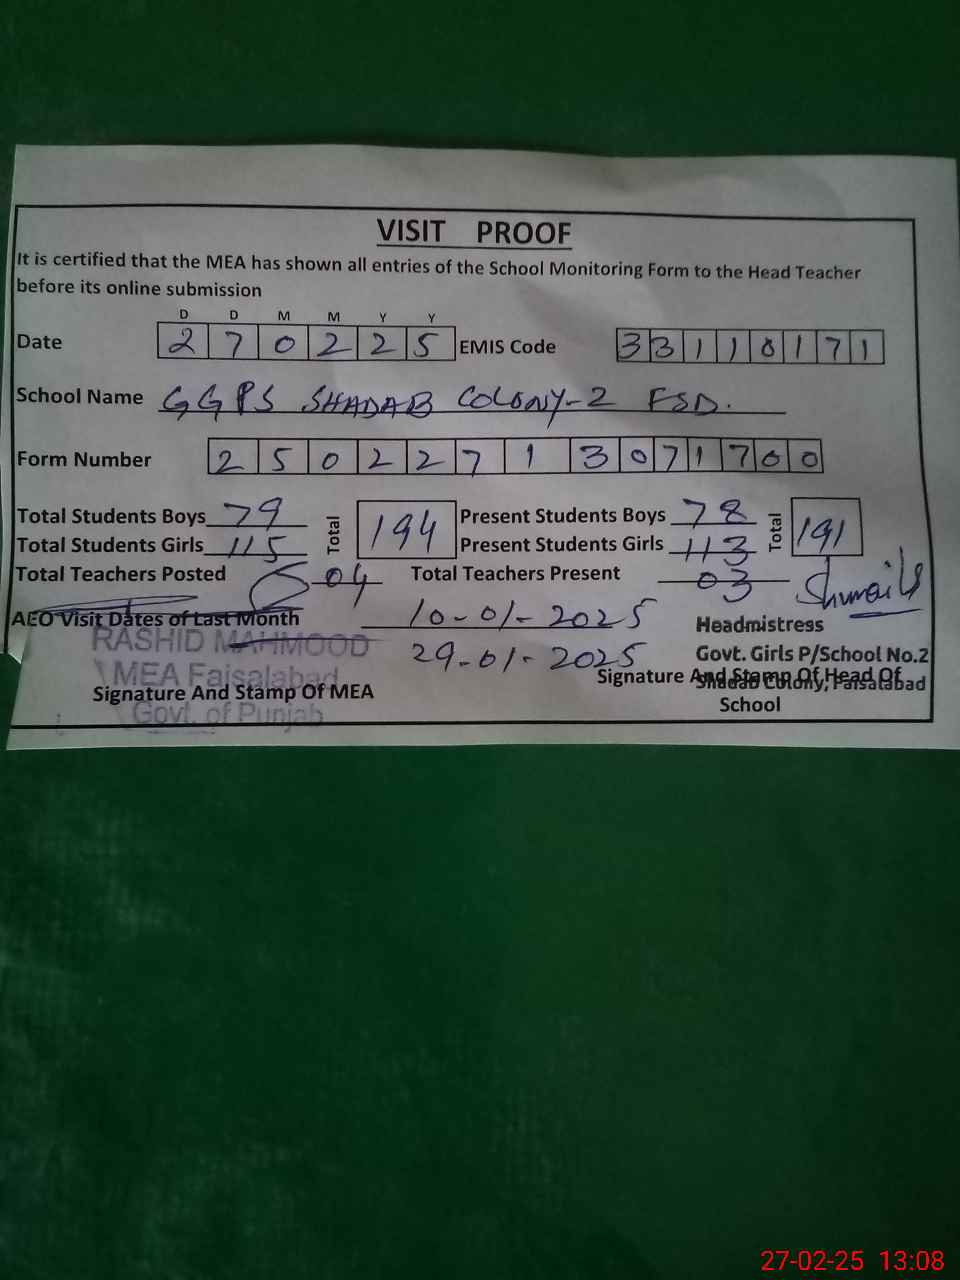 VISIT PROOF
It is certified that the MEA has shown all entries of the School Monitoring Form to the Head Teacher
before its online submission
D D M M Y Y
Date 2 7 0 2 2 5 EMIS Code 3 3 1 1 0 1 7 1
School Name GGPS SHADAB COLONY-2 FSD.
Form Number 2 5 0 2 2 7 1 3 0 7 1 7 0 0
Total Students Boys 79 Total 194 Present Students Boys 78 Total 191
Total Students Girls 115 Present Students Girls 113
Total Teachers Posted 04 Total Teachers Present 03
AEO Visit Dates of Last Month 10-01-2025
29-01-2025
RASHID MAHMOOD
MEA Faisalabad
Govt. of Punjab
Signature And Stamp Of MEA
Headmistress
Govt. Girls P/School No.2
Shadab Colony, Faisalabad
Signature And Stamp Of Head Of
School
27-02-25 13:08